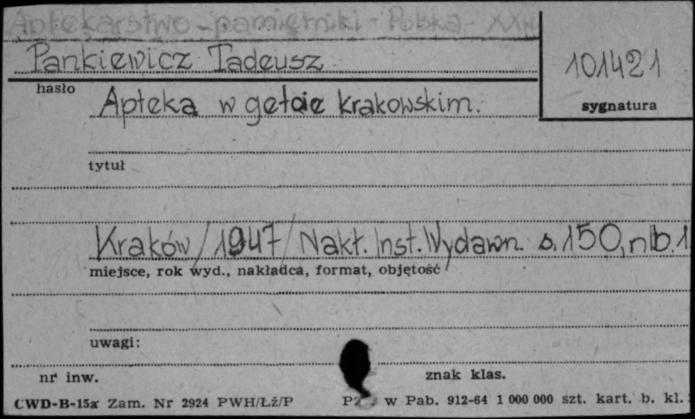 Aptekarstwo - pamiętniki - Polska - XX w
Pankiewicz Tadeusz
101421
hasło
sygnatura
Apteka w getcie krakowskim.
tytuł
Kraków / 1947 / Nakł. Inst. Wydawn. s. 150, nlb. 1
miejsce, rok wyd., nakładca, format, objętość
uwagi:
nr inw.
znak klas.
CWD-B-15a Zam. Nr 2924 PWH/Łż/P
w Pab. 912-64 1 000 000 szt. kart. b. kl.